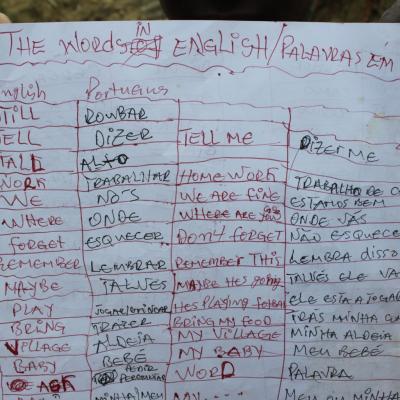 THE WORDS IN ENGLISH/PALAVRAS EM
English Portugues
ROUBAR
TELL DIZER TELL ME DIZER ME
TALL ALTO
WORK TRABALHAR HOME WORK TRABALHO DE
WE NOS WE ARE FINE ESTAMOS BEM
WHERE ONDE WHERE ARE YOU ONDE VÁS
FORGET ESQUECER DON'T FORGET NÃO ESQUECE
REMEMBER LEMBRAR REMEMBER THIS LEMBRA DISSO
MAYBE TALVES MAYBE HES GOING TALVÉS ELE VA
PLAY JOGAR/BRINCAR HES PLAYING ELE ESTA A JOGAR
BRING TRAZER BRING MY FOOD TRÁS MINHA
VILLAGE ALDEIA MY VILLAGE MINHA ALDEIA
BABY BEBÉ MY BABY MEU BEBÉ
ASK PEDIR PERGUNTAR WORD PALAVRA
MINHA/MEU MY.... MEU OU MINHA